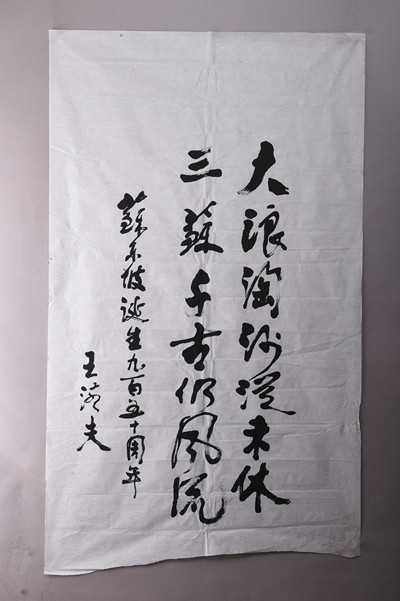 大浪淘沙從未休
三蘇千古仍風流
蘇東坡誕生九百五十周年
王夫